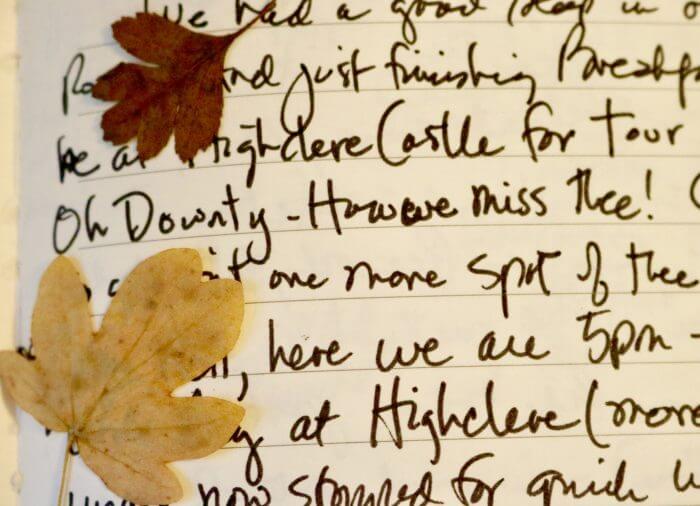 We had a good sleep in o
and just finishing Breakf
be a Highclere Castle for tour
Oh Downty - How we miss thee!
one more spot of thee
, here we are 5pm -
y at Highclere (more
now stopped for quick